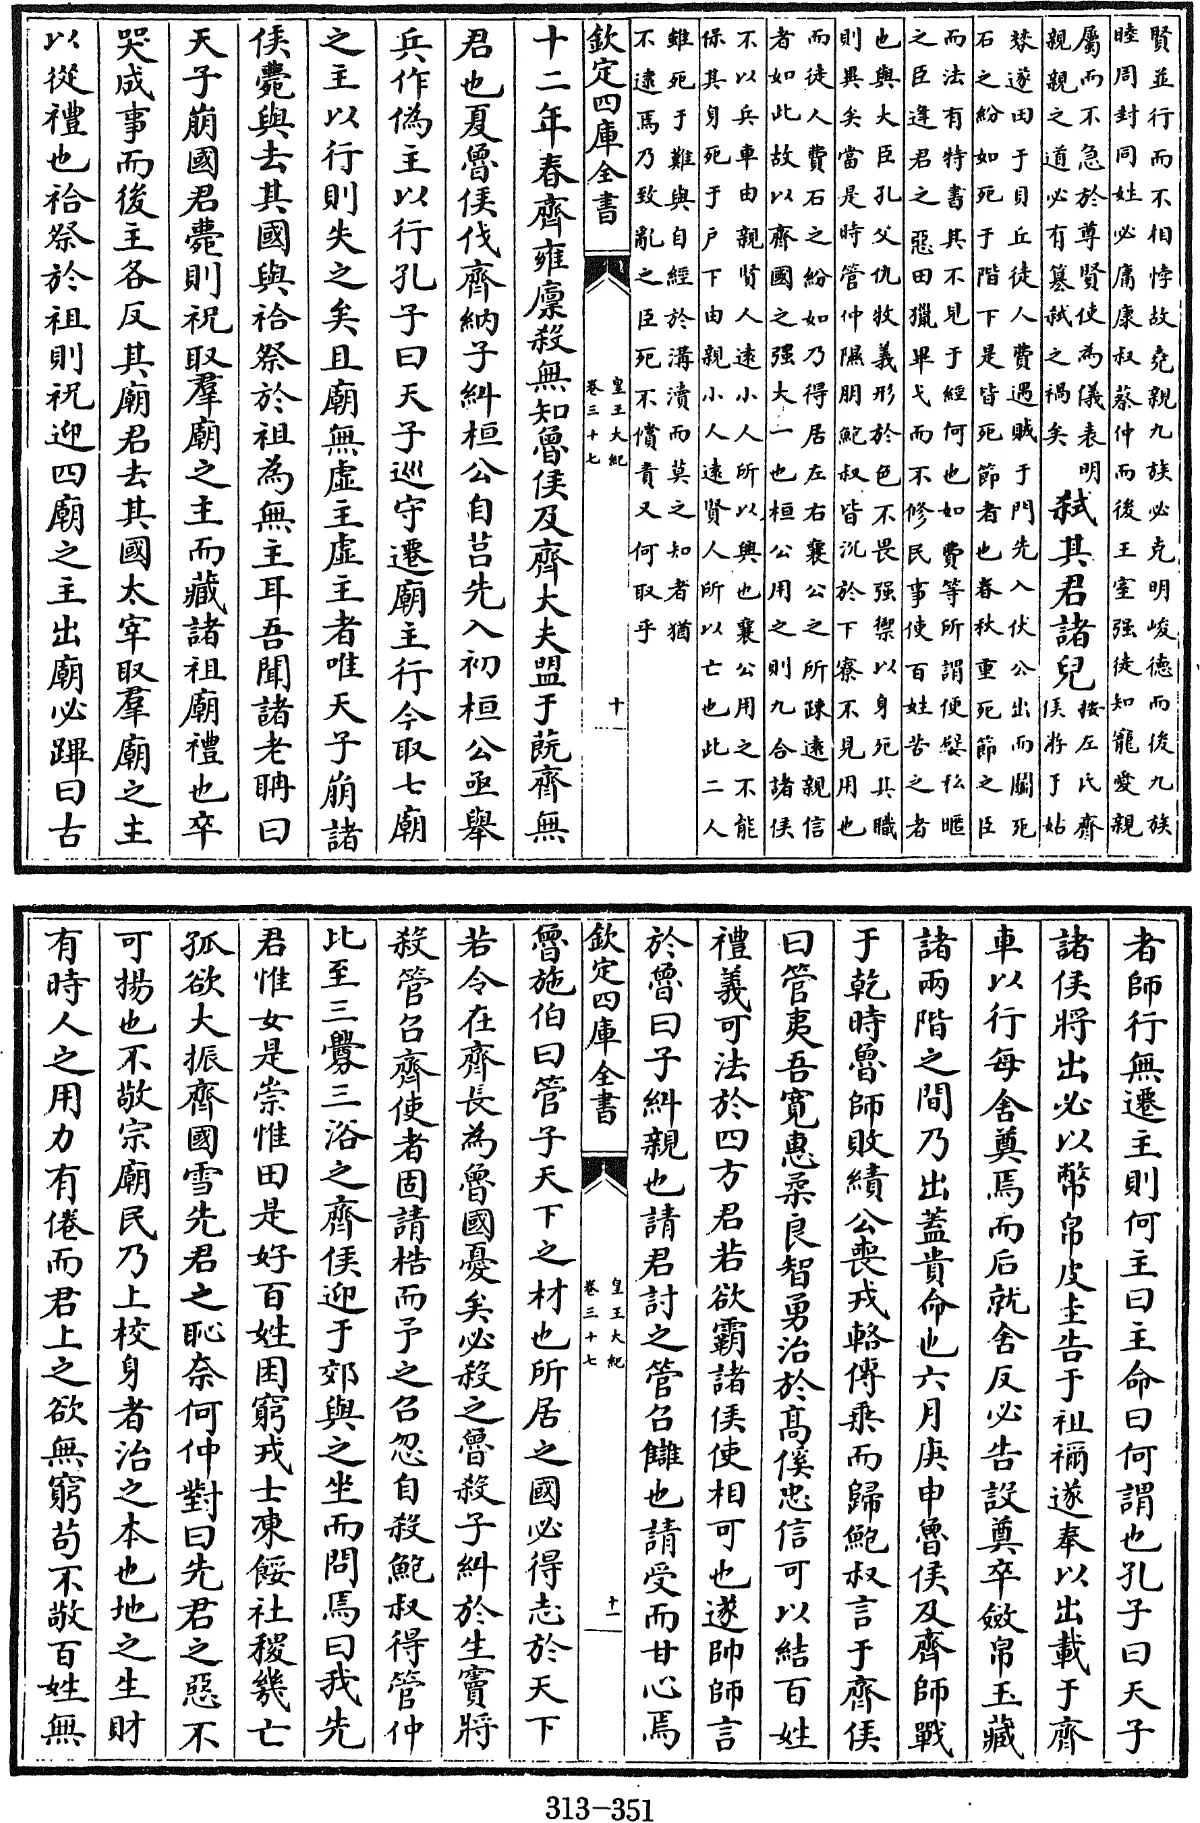 賢並行而不相悖故堯親九族必克明峻德而後九族
睦周封同姓必庸康叔蔡仲而後王室强徒知寵愛親
屬而不急於尊賢使為儀表明
親親之道必有篡弑之禍矣
弑其君諸兒
按左氏齊
侯游于姑
棼遂田于貝丘徒人費遇賊于門先入伏公出而鬭死
石之紛如死于階下是皆死節者也春秋重死節之臣
而法有特書其不見于經何也如費等所謂便嬖私暱
之臣逢君之惡田獵畢弋而不修民事使百姓苦之者
也與大臣孔父仇牧義形於色不畏强禦以身死其職
則異矣當是時管仲隰朋鮑叔皆沉於下寮不見用也
而徒人費石之紛如乃得居左右襄公之所疎遠親信
者如此故以齊國之强大一也桓公用之則九合諸侯
不以兵車由親賢人遠小人所以興也襄公用之不能
保其身死于户下由親小人遠賢人所以亡也此二人
雖死于難與自經於溝瀆而莫之知者猶
不逮焉乃致亂之臣死不償責又何取乎
欽定四庫全書
皇王大紀
卷三十七
十
十二年春齊雍廩殺無知魯侯及齊大夫盟于蔇齊無
君也夏魯侯伐齊納子糾桓公自莒先入初桓公亟舉
兵作偽主以行孔子曰天子巡守遷廟主行今取七廟
之主以行則失之矣且廟無虛主虛主者唯天子崩諸
侯薨與去其國與祫祭於祖為無主耳吾聞諸老聃曰
天子崩國君薨則祝取羣廟之主而藏諸祖廟禮也卒
哭成事而後主各反其廟君去其國太宰取羣廟之主
以從禮也祫祭於祖則祝迎四廟之主出廟必蹕曰古
者師行無遷主則何主曰主命曰何謂也孔子曰天子
諸侯將出必以幣帛皮圭告于祖禰遂奉以出載于齊
車以行每舍奠焉而后就舍反必告設奠卒斂帛玉藏
諸兩階之間乃出蓋貴命也六月庚申魯侯及齊師戰
于乾時魯師敗績公喪戎輅傳乘而歸鮑叔言于齊侯
曰管夷吾寬惠柔良智勇治於高傒忠信可以結百姓
禮義可法於四方君若欲霸諸侯使相可也遂帥師言
於魯曰子糾親也請君討之管召讎也請受而甘心焉
欽定四庫全書
皇王大紀
卷三十七
十一
魯施伯曰管子天下之材也所居之國必得志於天下
若令在齊長為魯國憂矣必殺之魯殺子糾於生竇將
殺管召齊使者固請梏而予之召忽自殺鮑叔得管仲
比至三釁三浴之齊侯迎于郊與之坐而問焉曰我先
君惟女是崇惟田是好百姓困窮戎士凍餒社稷幾亡
孤欲大振齊國雪先君之恥奈何仲對曰先君之惡不
可揚也不敬宗廟民乃上校身者治之本也地之生財
有時人之用力有倦而君上之欲無窮苟不敬百姓無
313-351